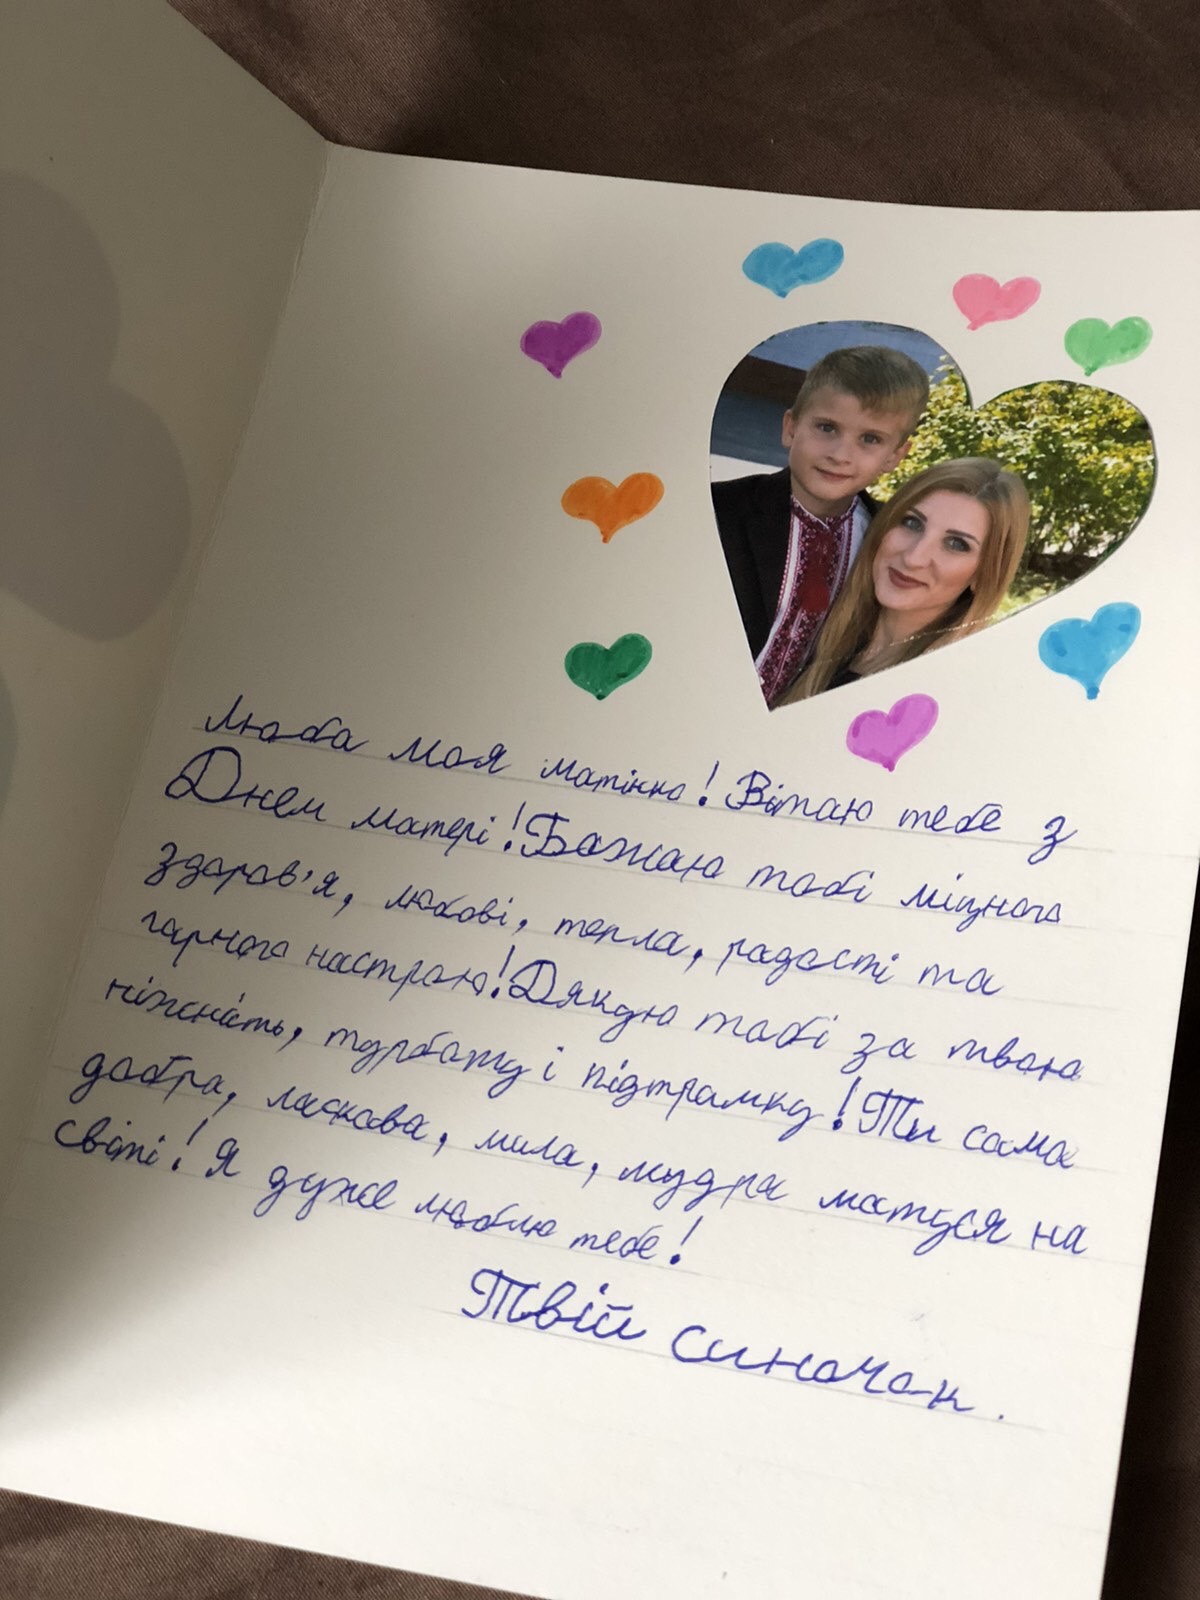 Люба моя матінко! Вітаю тебе з
Днем матері! Бажаю тобі міцного
здоров'я, любові, тепла, радості та
гарного настрою! Дякую тобі за твою
ніжність, турботу і підтримку! Ти сама
добра, ласкава, мила, мудра матуся на
світі! Я дуже люблю тебе!
Твій синочок.